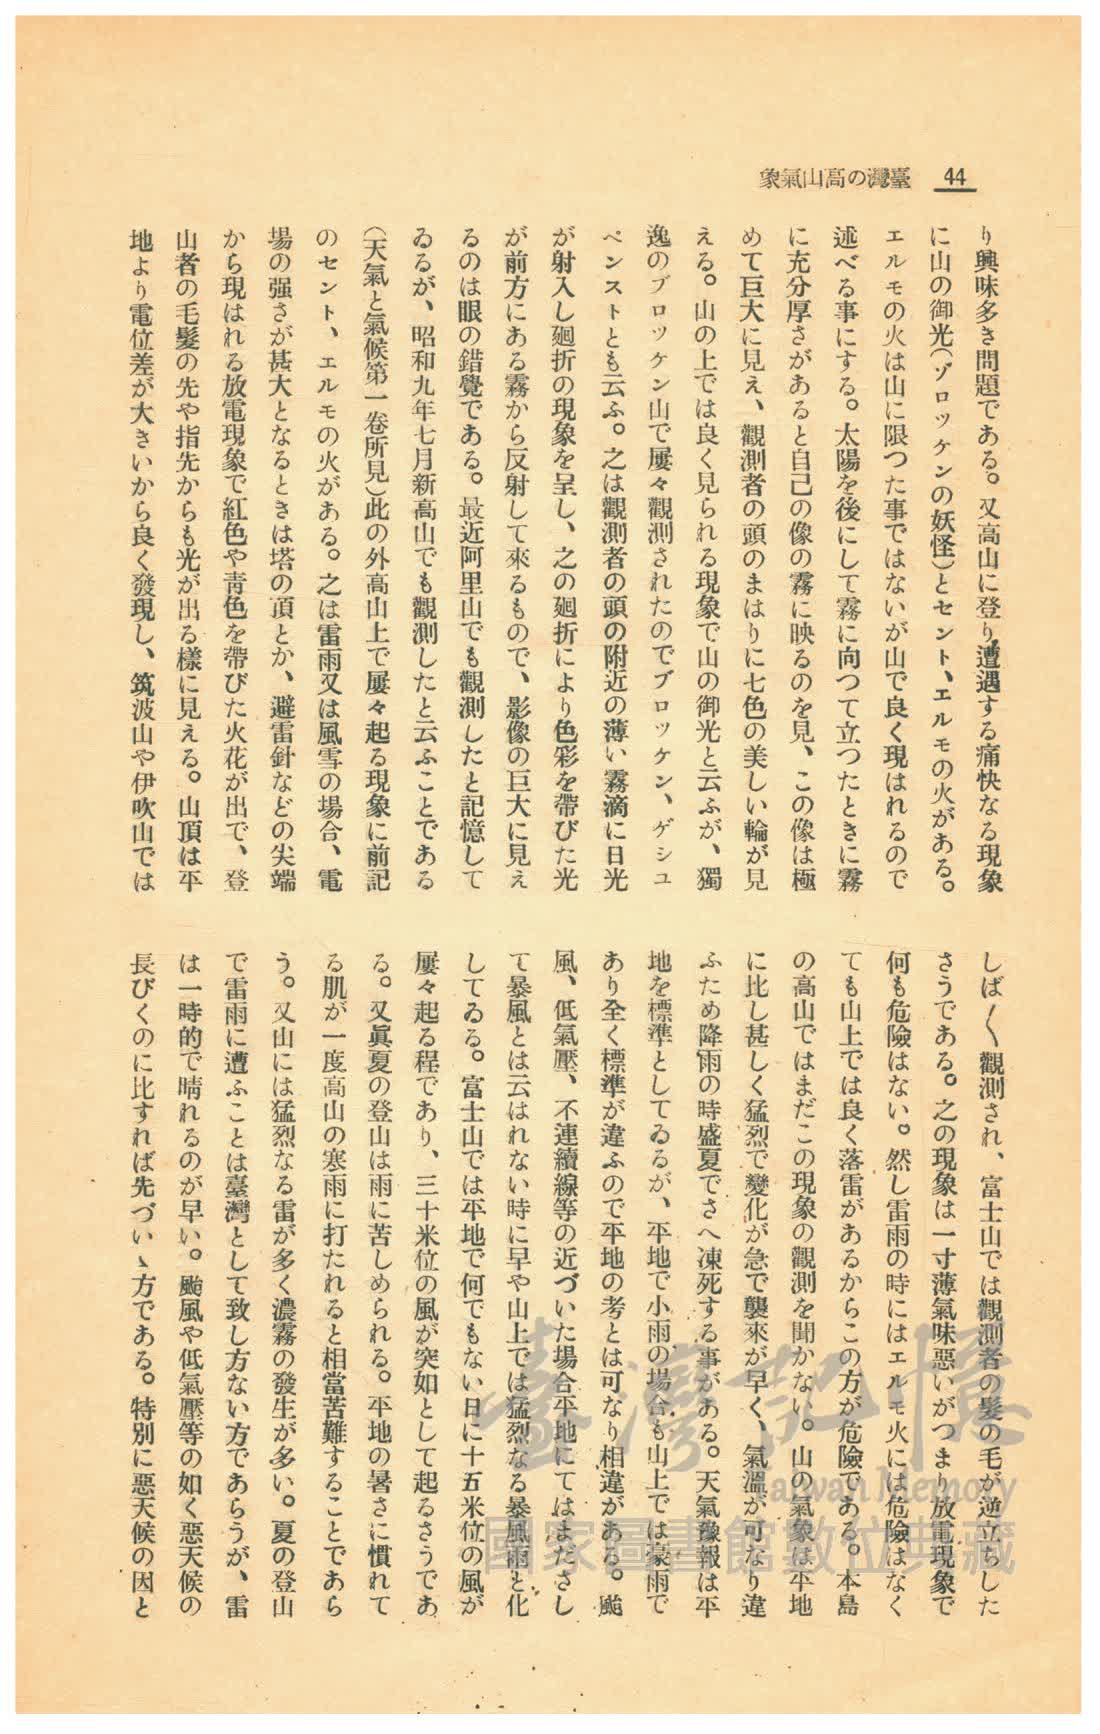 44
臺灣の高山氣象
り興味多き問題である。又高山に登り遭遇する痛快なる現象
に山の御光(ゾロツケンの妖怪)とセント、エルモの火がある。
エルモの火は山に限つた事ではないが山で良く現はれるので
述べる事にする。太陽を後にして霧に向つて立つたときに霧
に充分厚さがあると自己の像の霧に映るのを見、この像は極
めて巨大に見え、觀測者の頭のまはりに七色の美しい輪が見
える。山の上では良く見られる現象で山の御光と云ふが、獨
逸のブロツケン山で屢々觀測されたのでブロツケン、ゲシユ
ペンストとも云ふ。之は觀測者の頭の附近の薄い霧滴に日光
が射入し廻折の現象を呈し、之の廻折により色彩を帶びた光
が前方にある霧から反射して來るもので、影像の巨大に見え
るのは眼の錯覺である。最近阿里山でも觀測したと記憶して
ゐるが、昭和九年七月新高山でも觀測したと云ふことである
(天氣と氣候第一卷所見)此の外高山上で屢々起る現象に前記
のセント、エルモの火がある。之は雷雨又は風雪の場合、電
場の强さが甚大となるときは塔の頂とか、避雷針などの尖端
から現はれる放電現象で紅色や靑色を帶びた火花が出で、登
山者の毛髮の先や指先からも光が出る樣に見える。山頂は平
地より電位差が大きいから良く發現し、筑波山や伊吹山では
しば〱觀測され、富士山では觀測者の髮の毛が逆立ちした
さうである。之の現象は一寸薄氣味惡いがつまり放電現象で
何も危險はない。然し雷雨の時にはエルモ火には危險はなく
ても山上では良く落雷があるからこの方が危險である。本島
の高山ではまだこの現象の觀測を聞かない。山の氣象は平地
に比し甚しく猛烈で變化が急で襲來が早く、氣溫が可なり違
ふため降雨の時盛夏でさへ凍死する事がある。天氣豫報は平
地を標準としてゐるが、平地で小雨の場合も山上では豪雨で
あり全く標準が違ふので平地の考とは可なり相違がある。颱
風、低氣壓、不連續線等の近づいた場合平地にてはまださし
て暴風とは云はれない時に早や山上では猛烈なる暴風雨と化
してゐる。富士山では平地で何でもない日に十五米位の風が
屢々起る程であり、三十米位の風が突如として起るさうであ
る。又眞夏の登山は雨に苦しめられる。平地の暑さに慣れて
る肌が一度高山の寒雨に打たれると相當苦難することであら
う。又山には猛烈なる雷が多く濃霧の發生が多い。夏の登山
で雷雨に遭ふことは臺灣として致し方ない方であらうが、雷
は一時的で晴れるのが早い。颱風や低氣壓等の如く惡天候の
長びくのに比すれば先づいゝ方である。特別に惡天候の因と
臺灣記憶
Taiwan Memory
國家圖書館數位典藏